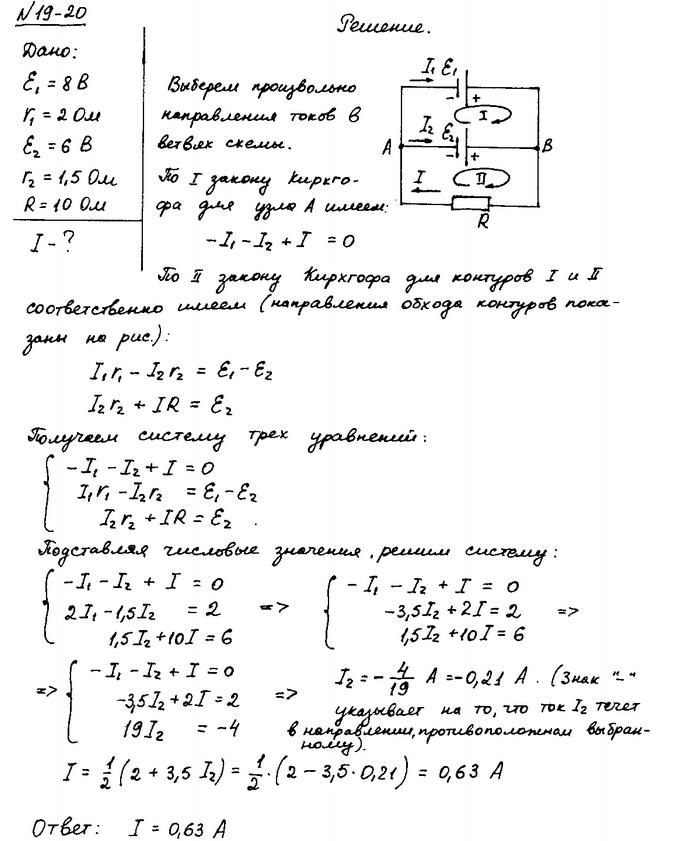 № 19-20
Решение.
Дано:
ℰ₁ = 8 В
r₁ = 2 Ом
ℰ₂ = 6 В
r₂ = 1,5 Ом
R = 10 Ом
I - ?
Выберем произвольно
направления токов в
ветвях схемы.
По I закону Кирхго-
фа для узла А имеем:
-I₁ - I₂ + I = 0
I₁ ℰ₁
- +
I
I₂ ℰ₂
A - + B
I II
R
По II закону Кирхгофа для контуров I и II
соответственно имеем (направления обхода контуров пока-
заны на рис.):
I₁r₁ - I₂r₂ = ℰ₁ - ℰ₂
I₂r₂ + IR = ℰ₂
Получаем систему трех уравнений:
-I₁ - I₂ + I = 0
I₁r₁ - I₂r₂ = ℰ₁ - ℰ₂
I₂r₂ + IR = ℰ₂ .
Подставляя числовые значения, решим систему:
{ -I₁ - I₂ + I = 0 => { -I₁ - I₂ + I = 0 =>
2I₁ - 1,5I₂ = 2 -3,5I₂ + 2I = 2
1,5I₂ + 10I = 6 1,5I₂ + 10I = 6
=> { -I₁ - I₂ + I = 0 => I₂ = -4/19 А = -0,21 А. (Знак "-"
-3,5I₂ + 2I = 2 указывает на то, что ток I₂ течет
19I₂ = -4 в направлении, противоположном выбран-
ному).
I = 1/2 (2 + 3,5 I₂) = 1/2 · (2 - 3,5 · 0,21) = 0,63 А
Ответ: I = 0,63 А